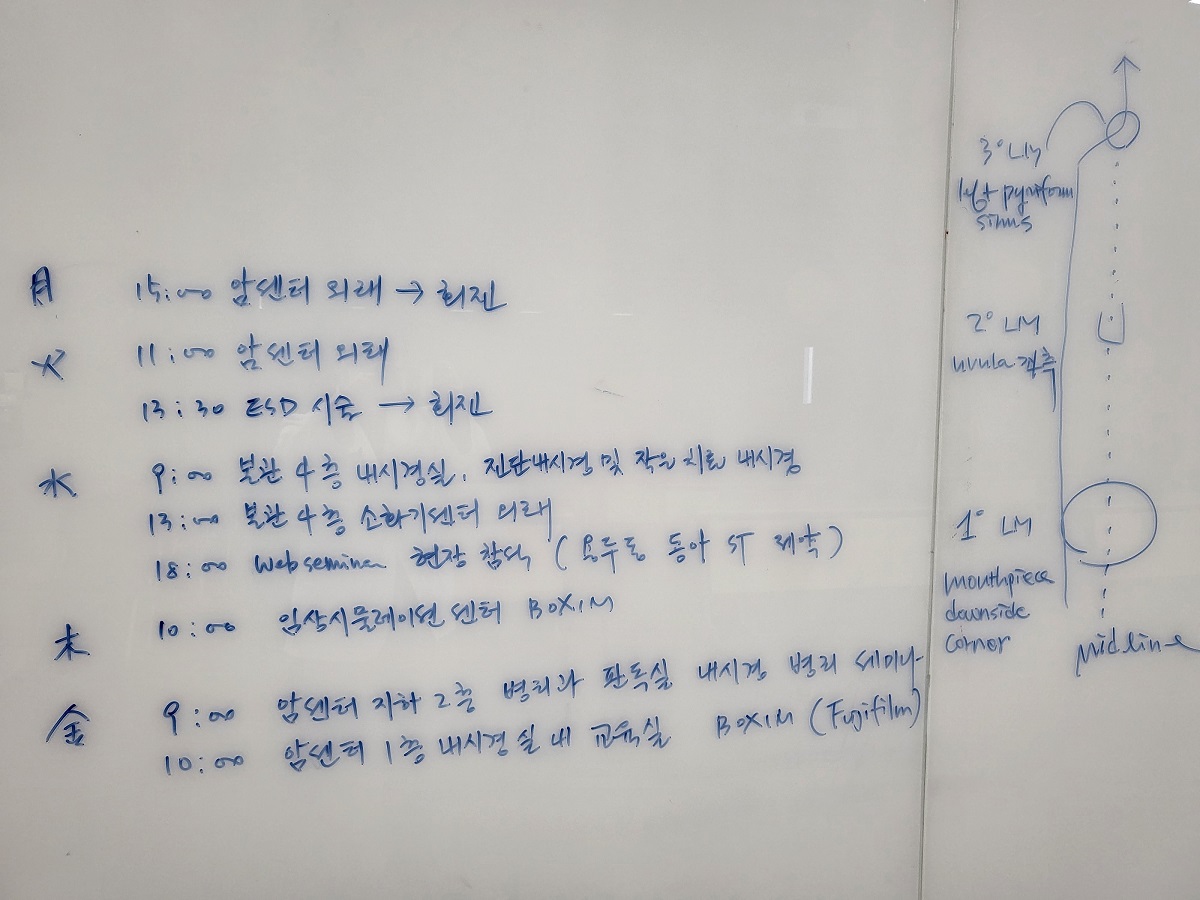 月 15:00 암센터 외래 → 회진
火 11:00 암센터 외래
13:30 ESD 시술 → 회진
水 9:00 본관 4층 내시경실. 진단내시경 및 작은 치료 내시경
13:00 본관 4층 소화기센터 외래
18:00 Webseminar 현장 참석 (용두동 동아 ST 제약)
木 10:00 임상시뮬레이션 센터 BOXIM
金 9:00 암센터 지하 2층 병리과 판독실 내시경 병리 세미나
10:00 암센터 1층 내시경실 내 교육실 BOXIM (Fujifilm)
3° LM
left pyriform
sinus
2° LM
uvula 좌측
1° LM
mouthpiece
downside
corner
Midline